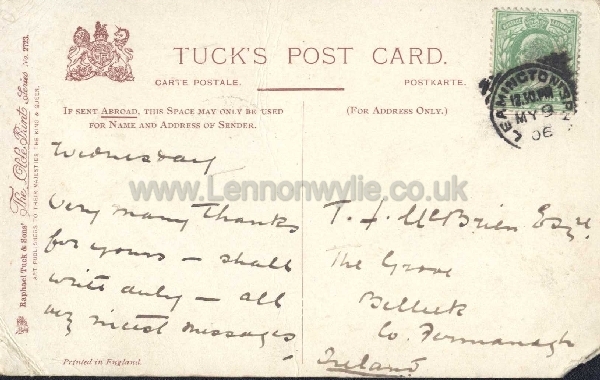 TUCK'S POST CARD.
CARTE POSTALE.
POSTKARTE.
IF SENT ABROAD, THIS SPACE MAY ONLY BE USED
FOR NAME AND ADDRESS OF SENDER.
(FOR ADDRESS ONLY.)
Wednesday
Very many thanks
for yours – shall
write duly – all
my nicest messages
T. J. McBrien Esqr.
The Grove
Belleek
Co. Fermanagh
Ireland
Printed in England.
Raphael Tuck & Sons' "The Olde Print" Series No. 2723.
ART PUBLISHERS TO THEIR MAJESTIES THE KING & QUEEN.
LEAMINGTON SPA
12.30 PM
MY 9
06
www.Lennonwylie.co.uk